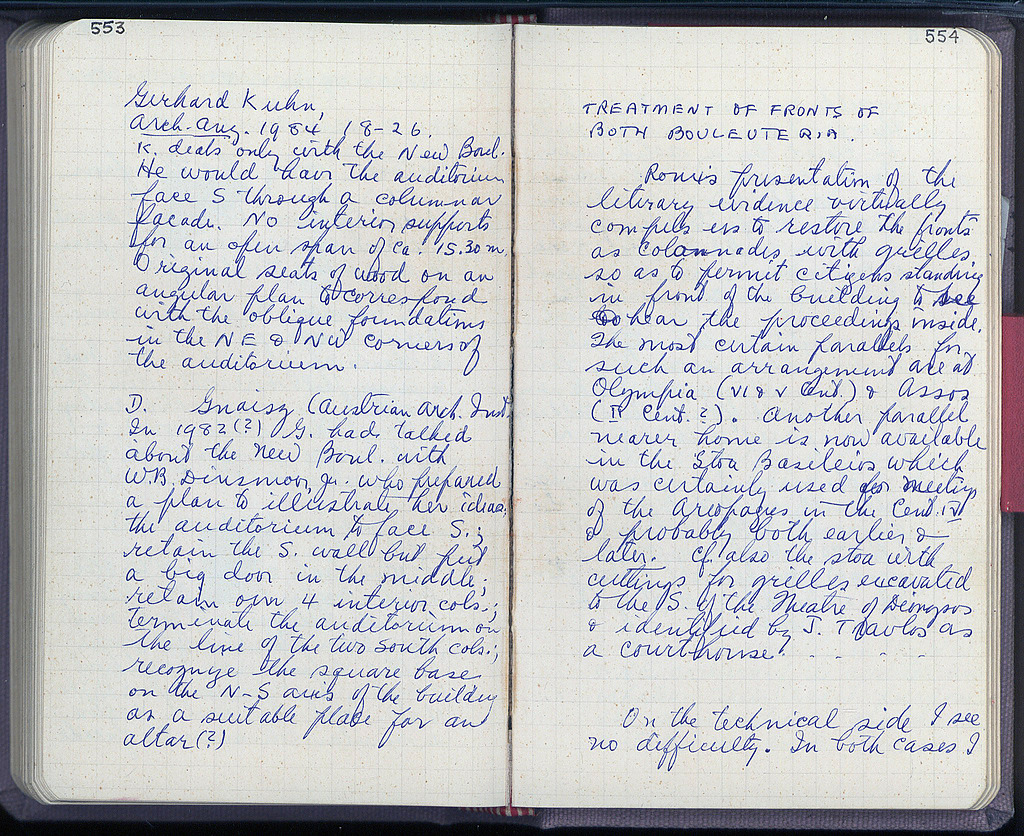 553
Gerhard Kuhn,
Arch. Anz. 1984, 18-26.
K. deals only with the New Boul.
He would have the auditorium
face S through a columnar
façade. No interior supports
for an open span of ca. 15.30 m.
Original seats of wood on an
angular plan to correspond
with the oblique foundations
in the NE & NW corners of
the auditorium.
D. Gnaisz (Austrian Arch. Inst.
In 1982(?) G. had talked
about the New Boul. with
W.B. Dinsmoor, Jr. who prepared
a plan to illustrate her ideas:
the auditorium to face S.;
retain the S. wall but put
a big door in the middle;
retain our 4 interior cols.;
terminate the auditorium on
the line of the two south cols.;
recognize the square base
on the N-S axis of the building
as a suitable place for an
altar(?)
554
TREATMENT OF FRONTS OF
BOTH BOULEUTERIA.
presentation of the
literary evidence virtually
compels us to restore the fronts
as colonnades with grilles
so as to permit citizens standing
in front of the building to see
hear the proceedings inside.
The most certain parallels for
such an arrangement are at
Olympia (VI & V Cent.) & Assos
(II Cent.?). Another parallel
nearer home is now available
in the Stoa Basileios which
was certainly used for meetings
of the Areopagus in the Cent. IV
& probably both earlier &
later. Cf. also the stoa with
cuttings for grilles excavated
to the S. of the Theatre of Dionysos
& identified by J. Travlos as
a courthouse. - - - -
On the technical side I see
no difficulty. In both cases I